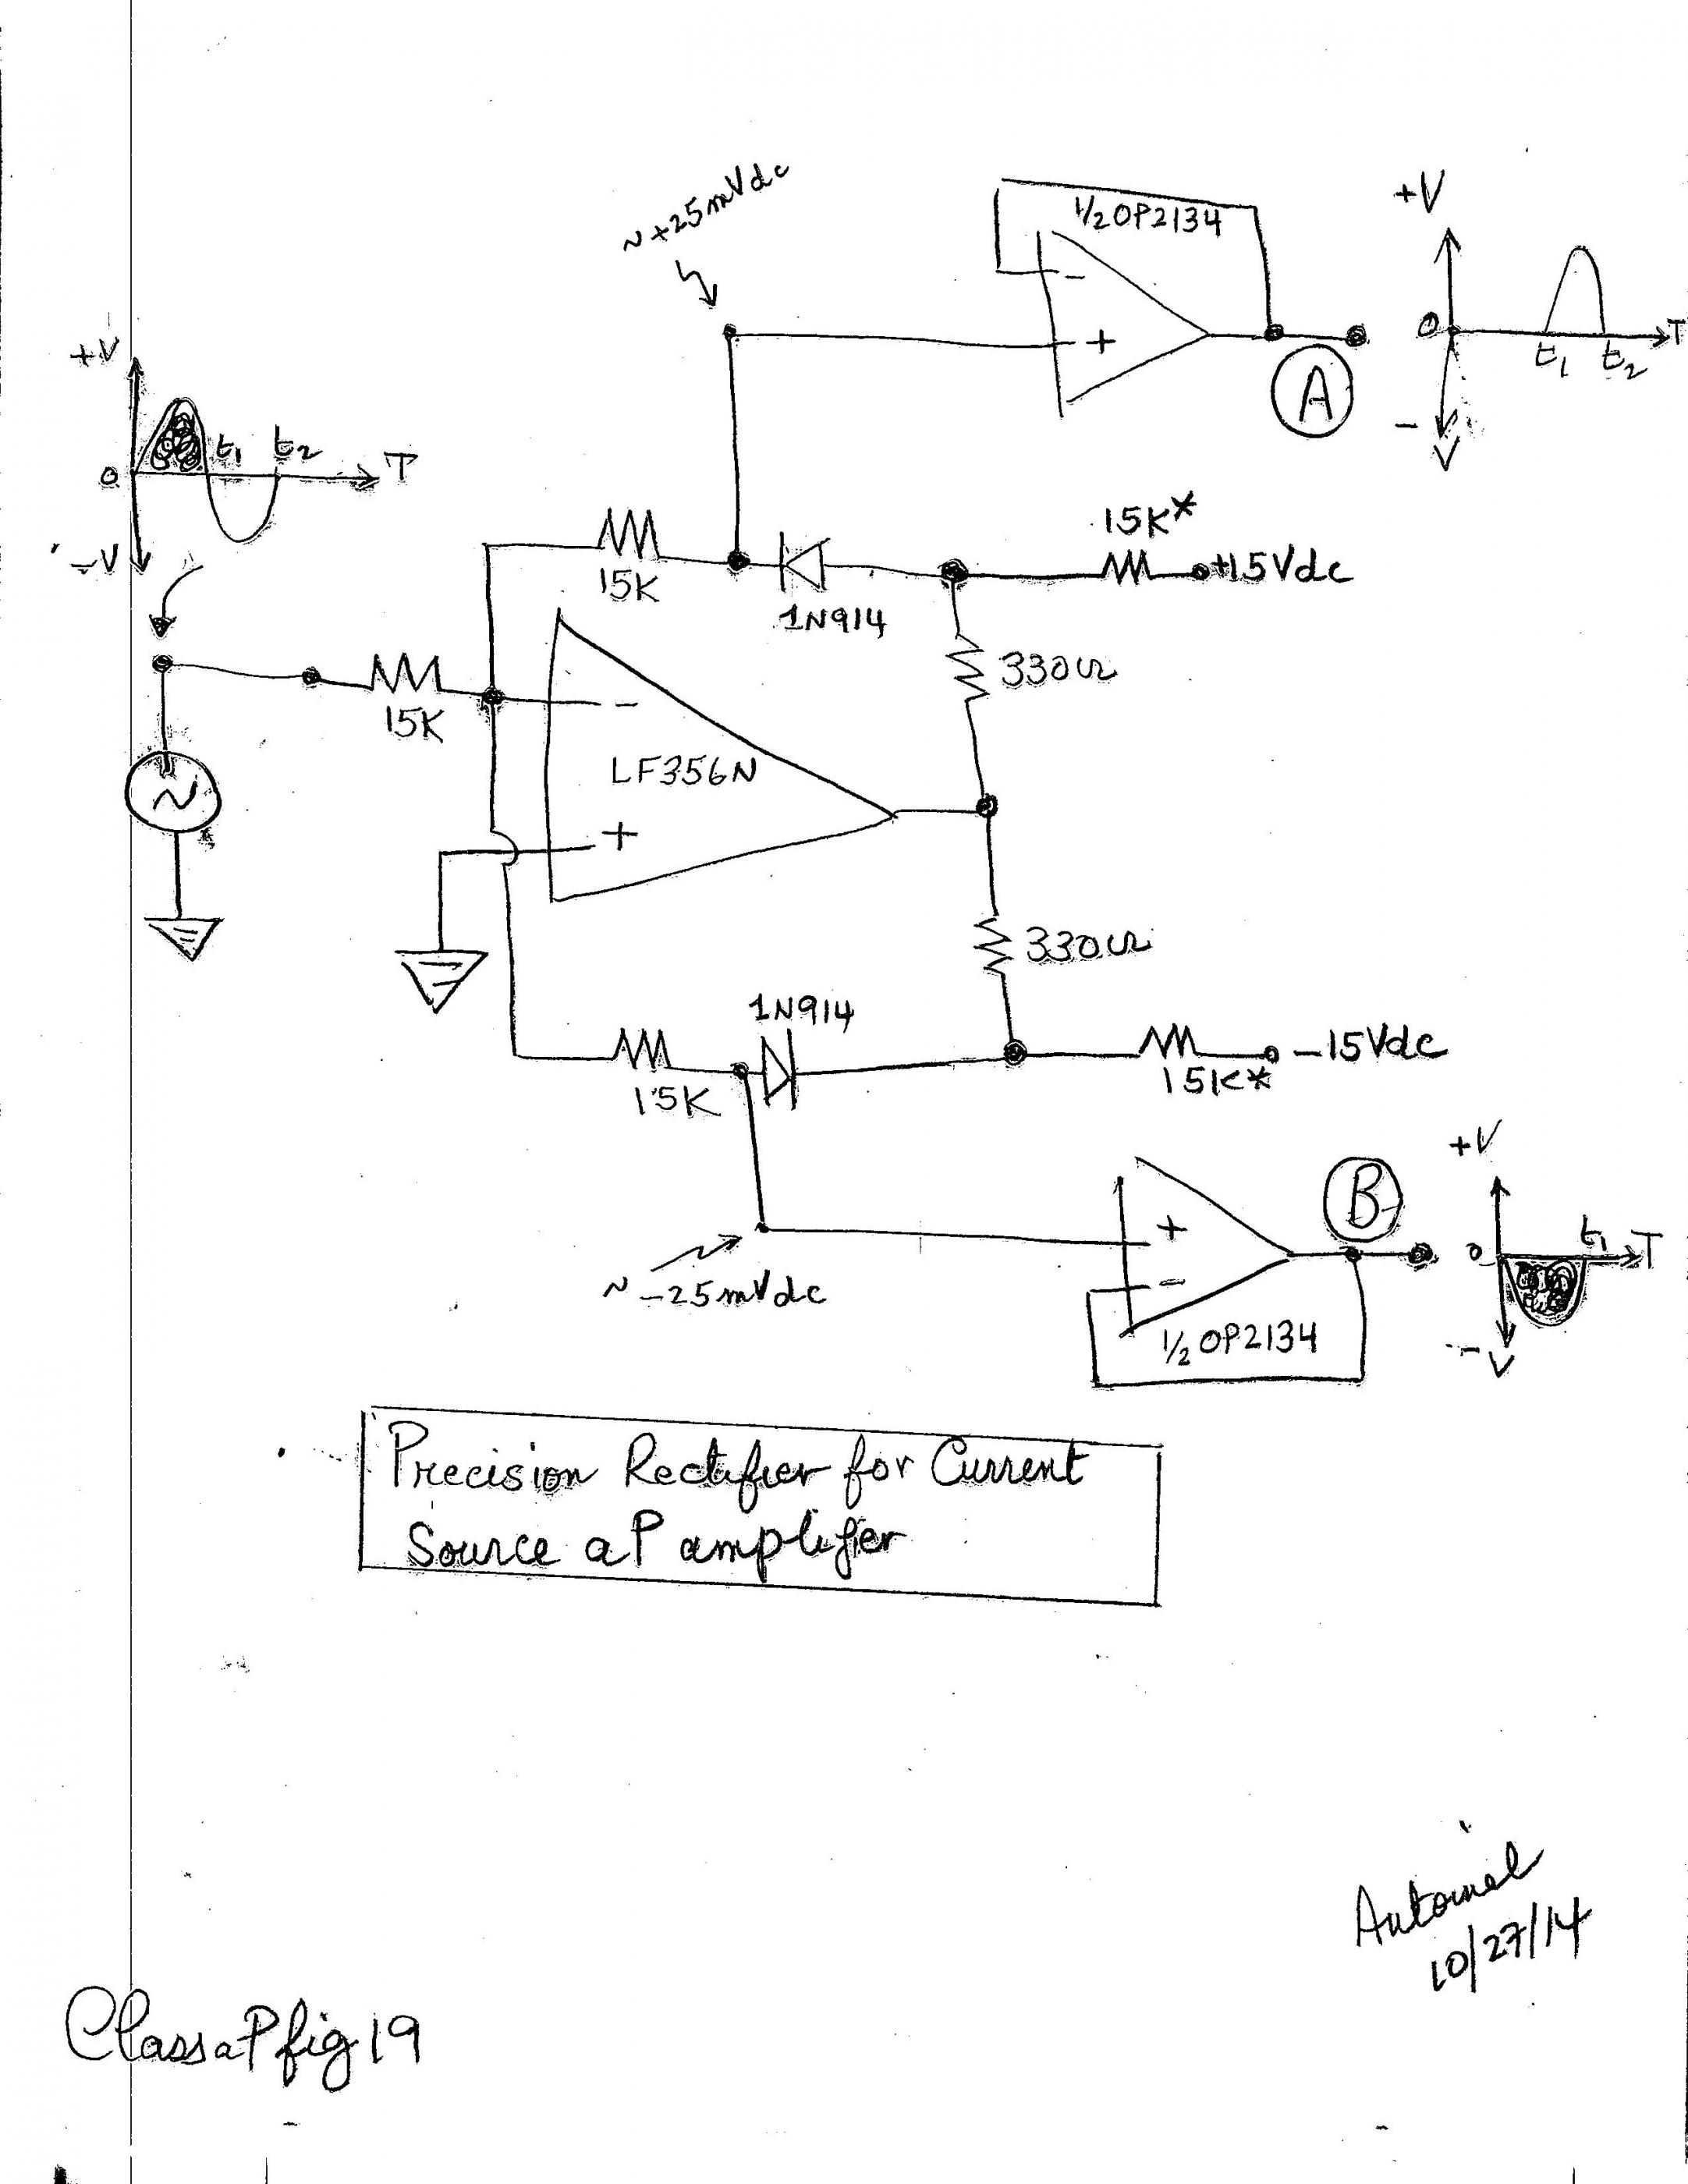 ~+25mVdc
1/2 OP2134
-
+
A
+V
0
t1 t2 T
-
V
+V
0
t1 t2 T
-V
15K
1N914
15K*
+15Vdc
330Ω
15K
-
LF356N
+
330Ω
1N914
15K
-15Vdc
15K*
~-25mVdc
+
-
1/2 OP2134
B
+V
0
t1 T
-
V
Precision Rectifier for Current
Source aP amplifier
10/27/14
Class aP fig 19